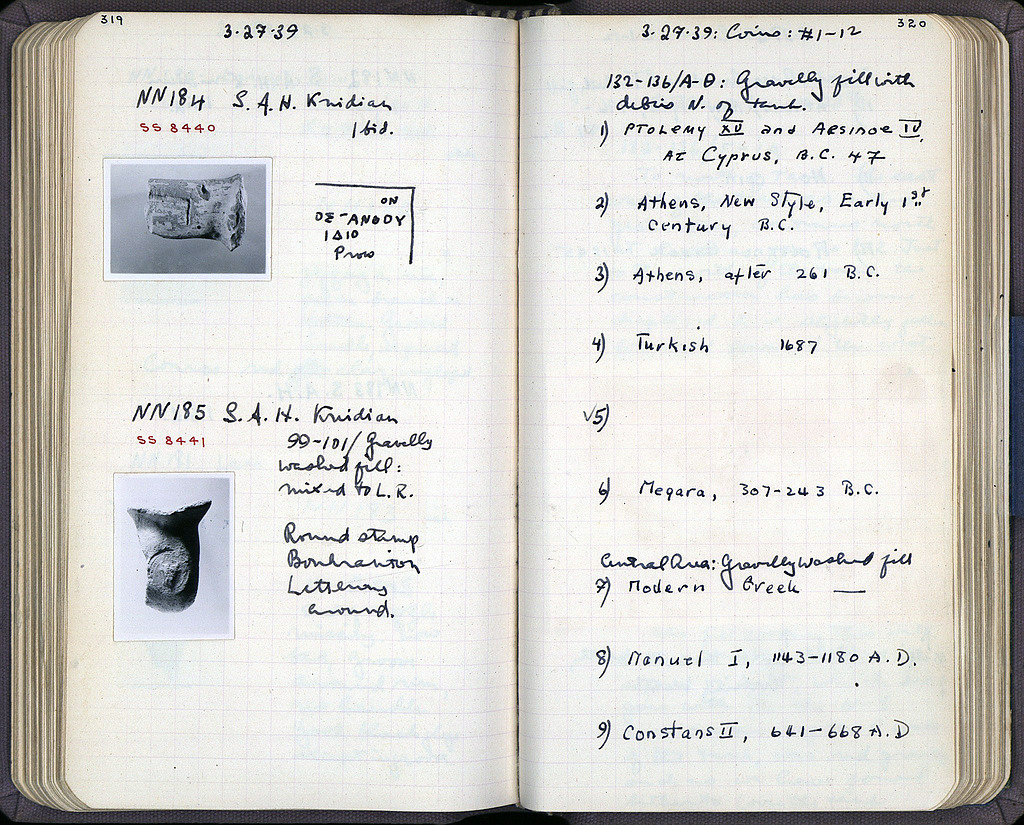 319
3-27-39
NN184 S.A.H. Knidian
SS 8440
Ibid.
ON
DE-ANODY
ΙΔΙΟ
Prow
NN185 S.A.H. Knidian
SS 8441
99-101/Gravelly
washed fill:
mixed to L.R.
Round stamp
Boukranion
Lettering
around.
320
3-27-39: Coins: #1-12
132-136/A-Θ: Gravelly fill with
debris N. of tank.
1) Ptolemy XV and Arsinoe IV,
At Cyprus, B.C. 47
2) Athens, New Style, Early 1st
Century B.C.
3) Athens, after 261 B.C.
4) Turkish 1687
√5)
6) Megara, 307-243 B.C.
Central Area: Gravelly washed fill
7) Modern Greek —
8) Manuel I, 1143-1180 A.D.
9) Constans II, 641-668 A.D